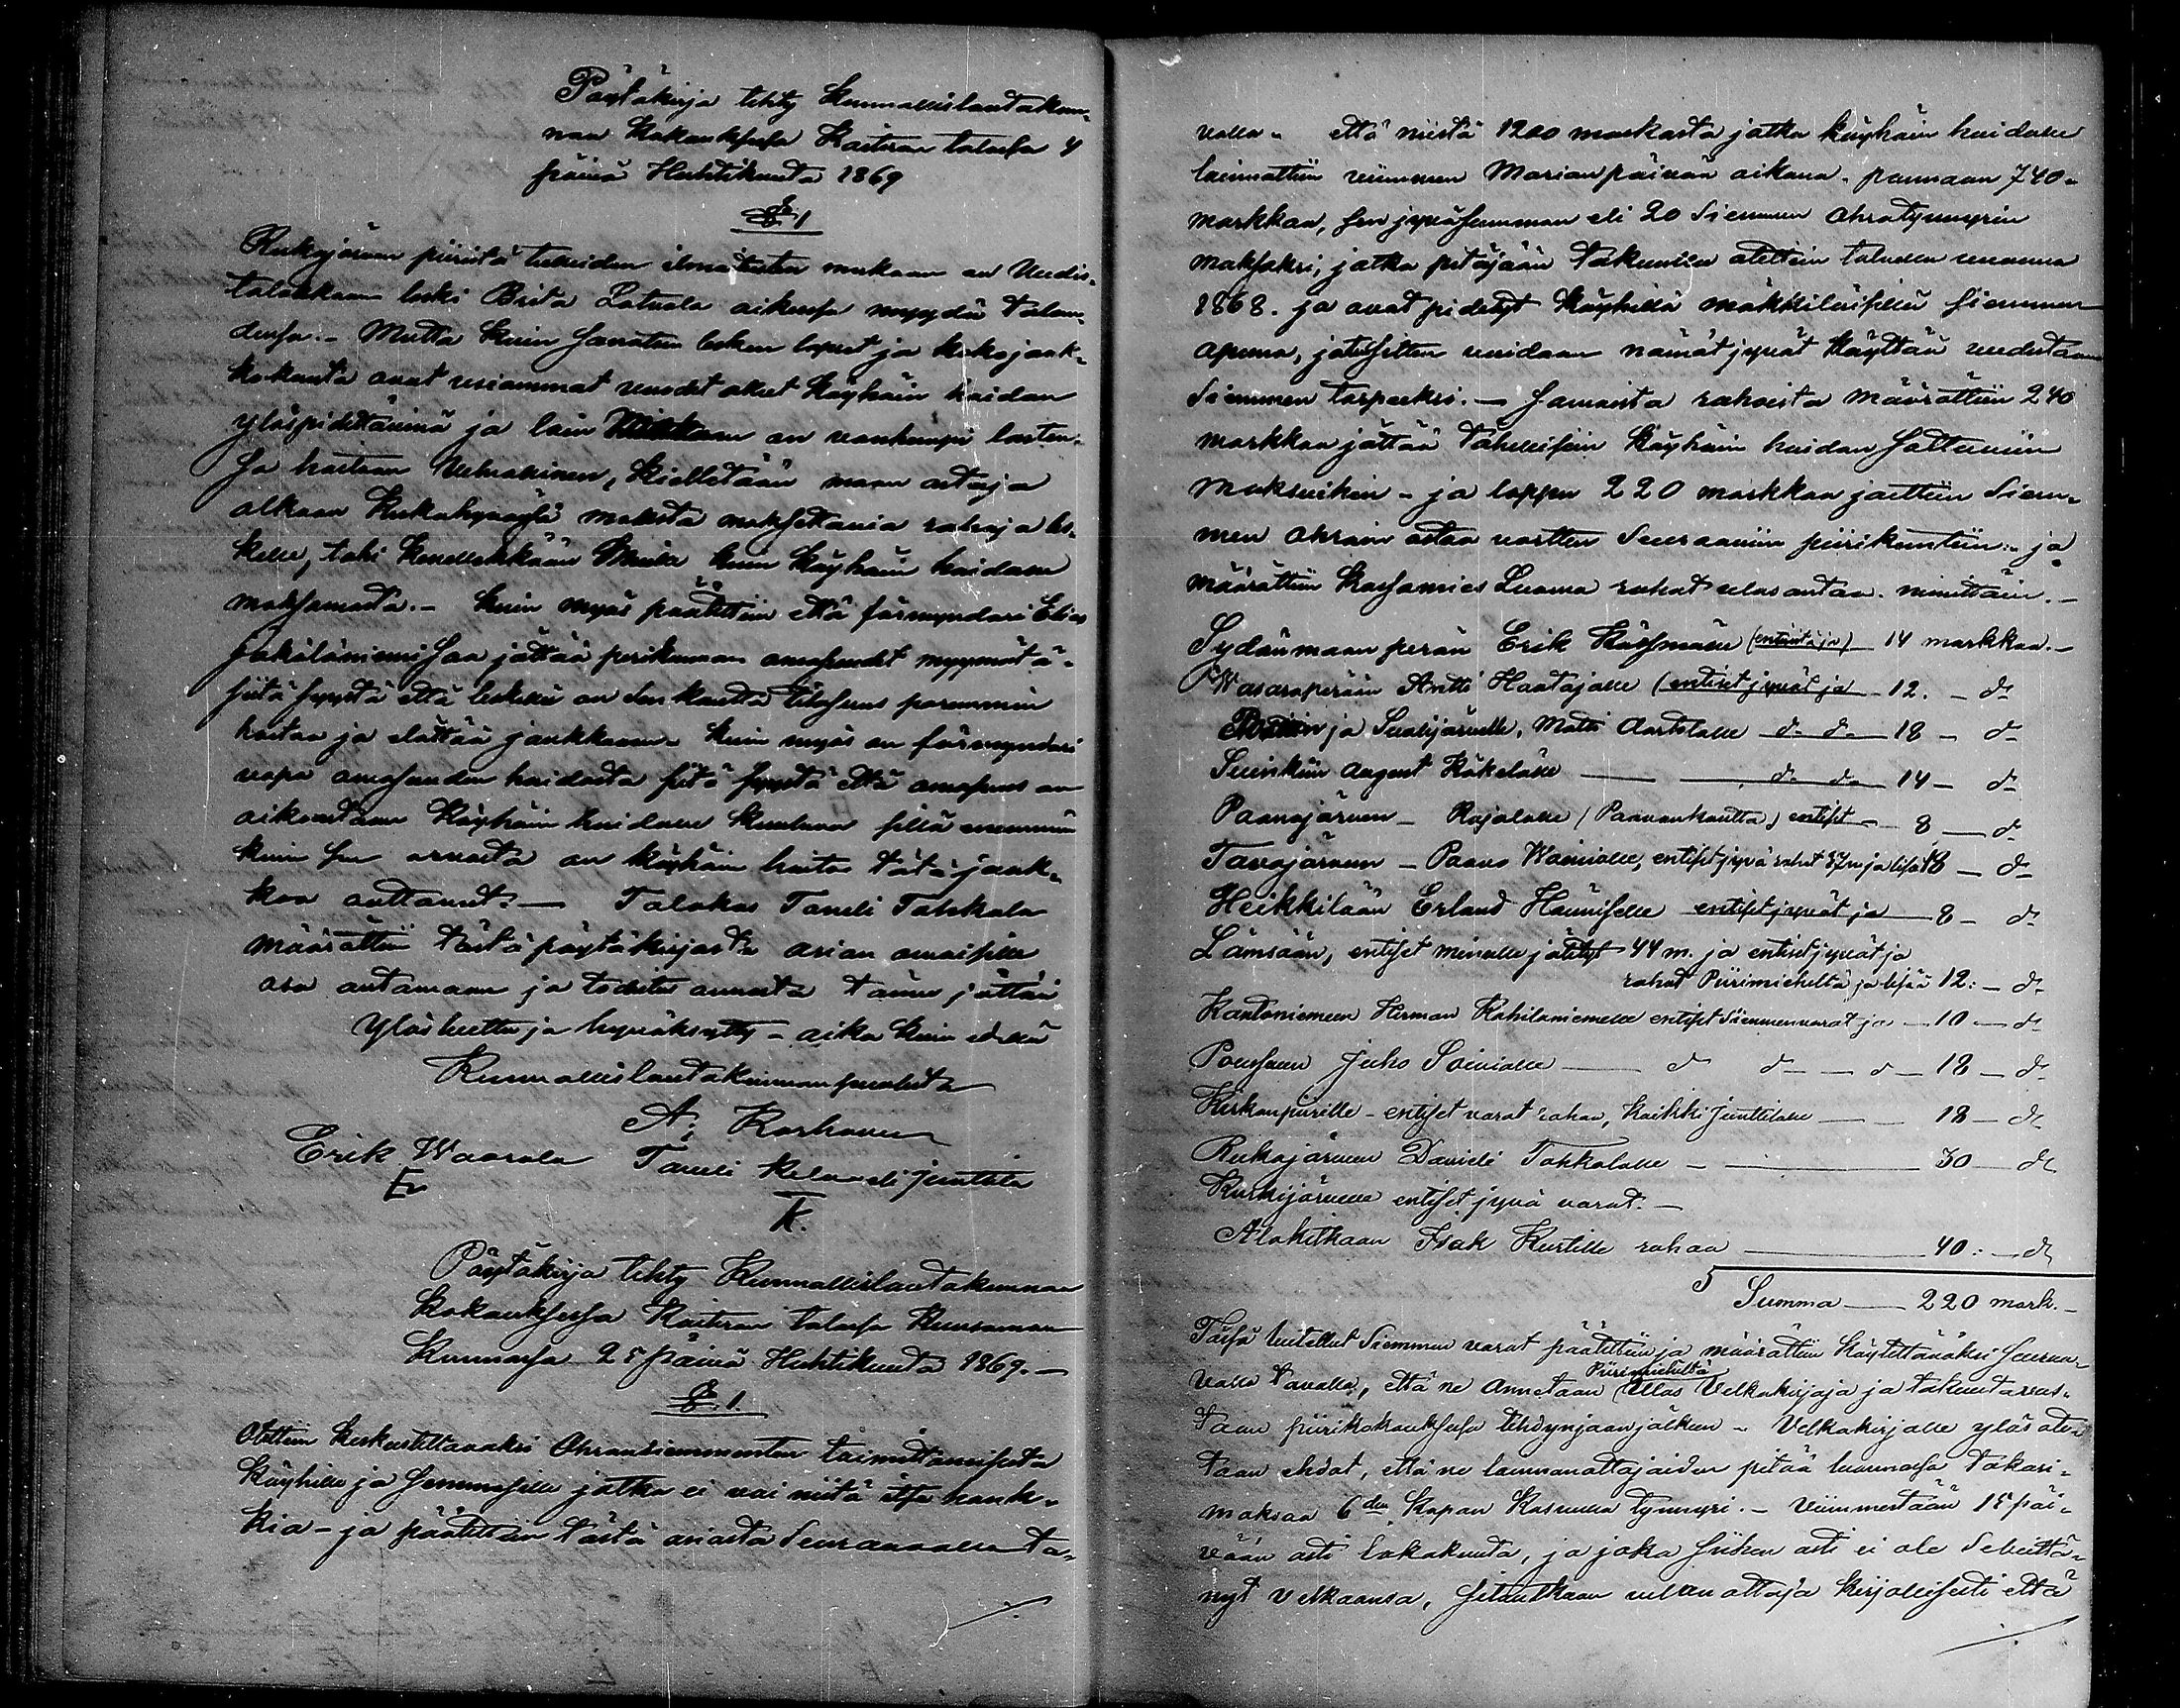 Pöytäkirja tehty Kunnallislautakun-
nan Kokouksessa Karteron talossa 4
päivä Huhtikuuta 1869
§. 1
Rukajärven piiristä tulleiden ilmoitusten mukaan on Uudis-
talokkaan leski Brita Latvala aikonut myydä talon-
densa. - Mutta kuin sanotun lesken lapset ja koko jouk-
kokunta ovat useammat vuodet olleet Köyhäin hoidon
ylöspidettävinä ja lain mukaan on vanhempi lasten-
sa hoitoon velvollinen, kielletään maan ostaja
olkoon kukahyvänsä maksta maksettavia rahoja les-
kelle, tahi kenellekkään muulle kuin Köyhäin hoidolle
maksamasta. - kuin myös päätettiin että förmyndari Elias
Jokiläniemi saa jättää perikunnan omaisuudet myymätä -
siitä syystä että leskellä on sen kautta tilaisuus paremmin
hoitaa ja elättää joukkoansa kuin myös on förmyndari
vapa omaisuuden hoidosta siitä syystä että omaisuus on
aikoinansa Köyhäin hoidolle kuuluva sillä enemmän
kuin sen arvosta on köyhäin hoito tätä jouk-
koa auttanut. - Talokas Taneli Tahkala
määrättiin tästä pöytäkirjasta asian omaisille
osa antamaan ja todistus annosta tänne jättää
Ylösluettu ja hyväksytty - aika kuin edellä
Kunnallislautakunnan puolesta
A; Korhonen
Erik Waarala Taneli Kela eli Junttila
K.
Pöytäkirja tehty Kunnallislautakunnan
Kokouksessa Karteron talossa Kuusamon
Kunnassa 25 päivä Huhtikuuta 1869. -
§. 1.
Otettiin keskusteltavaksi Ohransiemmenten toimittamisesta
Köyhille ja semmosille jotka ei voi niitä itse hank-
kia - ja päätettiin tästä asiasta Seuraavalla ta-
valla - että niistä 1200 markasta jotka köyhäin hoidolle
lainattiin viimmeisen Marian päivän aikana, pannaan 740
markkaa, sen jyväsumman eli 20 Siemmen ohratynnyrin
maksoksi, jotka pitäjään Takuulla otettiin talvella vuonna
1868. ja ovat pidetyt Köyhillä mökkiläisillä siemmen
apuna, jotavasten voidaan nämät jyvät käyttää uudestaan
Siemmen tarpeeksi. - Samoista rahoista määrättiin 240
markkaa jättää Tähellisiin Köyhäin hoidon sattuviin
maksuihin - ja loppu 220 markkaa jaettiin Siem-
men ohrain ostoa vartten Seuraaviin piirikuntiin: ja
määrättiin Kassamies Luoma rahat ulosantaa. nimittäin. -
Sydänmaan perän Erik Käsmälle (entiset ja) - 14 markkaa. -
Wasaraperään Antti Hautajalle (entiset jyvät ja - 12. - do
ja Suolijärvelle, Matti Aartolalle do do - 18 - do
Suinkiin August Käkelälle do do - 14 - do
Paanajärven - Rajalalle (Paavon kautta) entiset - 8 - do
Tavajärven - Paavo Wäiniolle, entiset jyvä rahat 37m ja lisää 18 - do
Heikkilään Erland Hännisselle entiset jyvät ja - 8 - do
Lämsään, entiset minulle jätetyt 44 m. ja entiset jyvät ja
rahat Piirimieheltä ja lisää 12: - do
Kantoniemeen Herman Rahilaniemelle entiset Siemmenvarat ja - 10 - do
Pousuun Juho Soiviolle do do - do - 18 - do
Kirkonpiirille - entiset varat rahaa, Kaikki Junttilalle - 18 - do
Rukajärveen Daniel Tahkolalle - 30 - do
Kurkijärvelle entiset jyvä varat. -
Alakitkaan Isak Kurtille rahaa 40: - do
Summa - 220 mark. -
Tässä luetellut Siemmen varat päätettiin ja määrättiin käytettäväksi seuraa-
valla tavalla, että ne annetaan Piirimieheltä Ulos Velkakirjoja ja takuuta vas-
taan piirikokouksessa tehdyn jaon jälkeen - Velkakirjalle ylös ote-
taan ehdot, että ne lainanottajaiden pitää luonnossa takasi-
maksaa 6den Kapan Kasvulla tynnyri. - Viimmestään 15 päi-
vään asti lokakuuta, ja joka siihen asti ei ole selvittä-
nyt velkaansa, sitoutkoon velanottaja kirjallisesti että